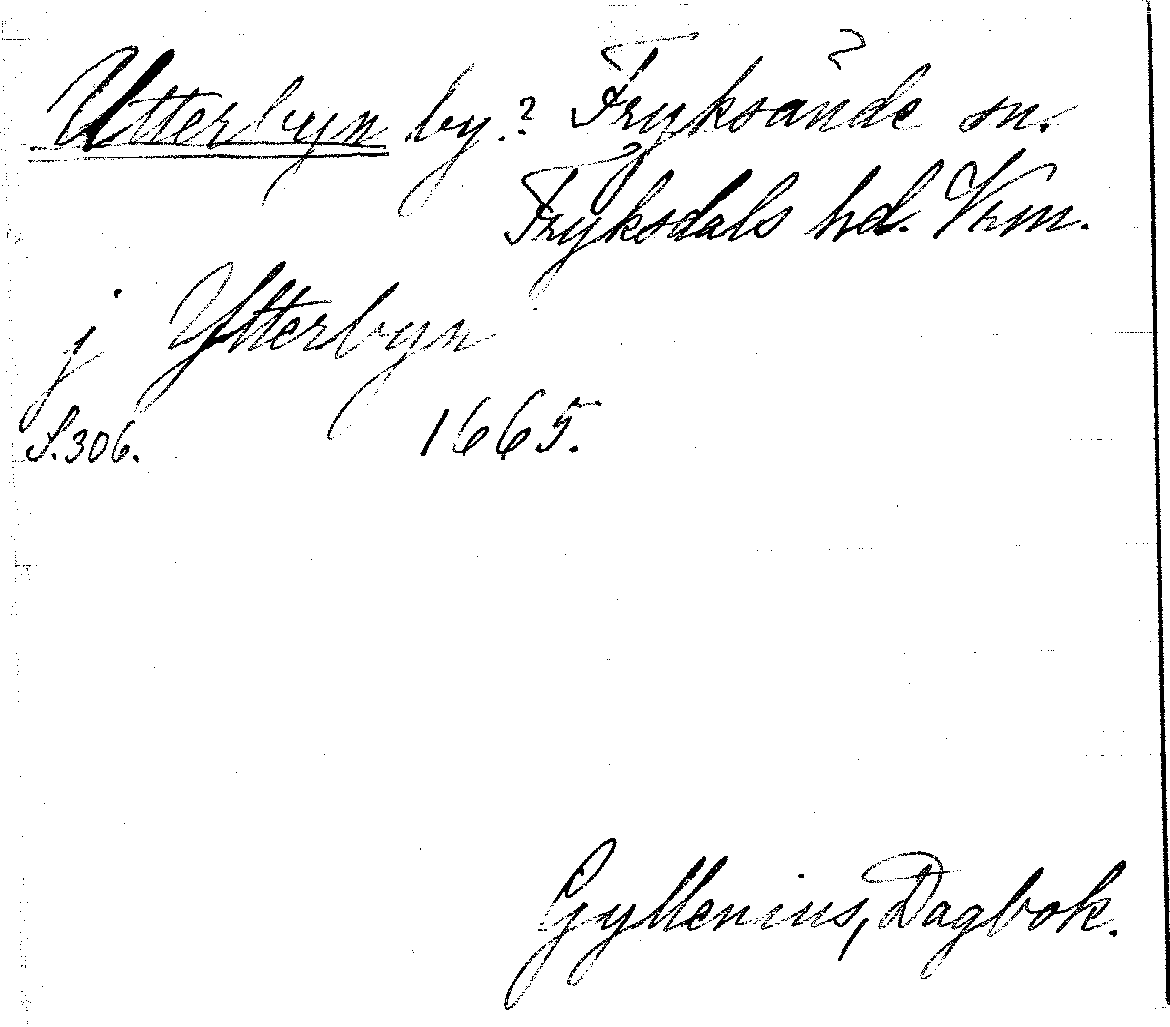 Utterbyn by.? Fryksände sn.
Fryksdals hd. Vrm.
j Ytterbyn
S. 306. 1665.
Gyllenius, Dagbok.